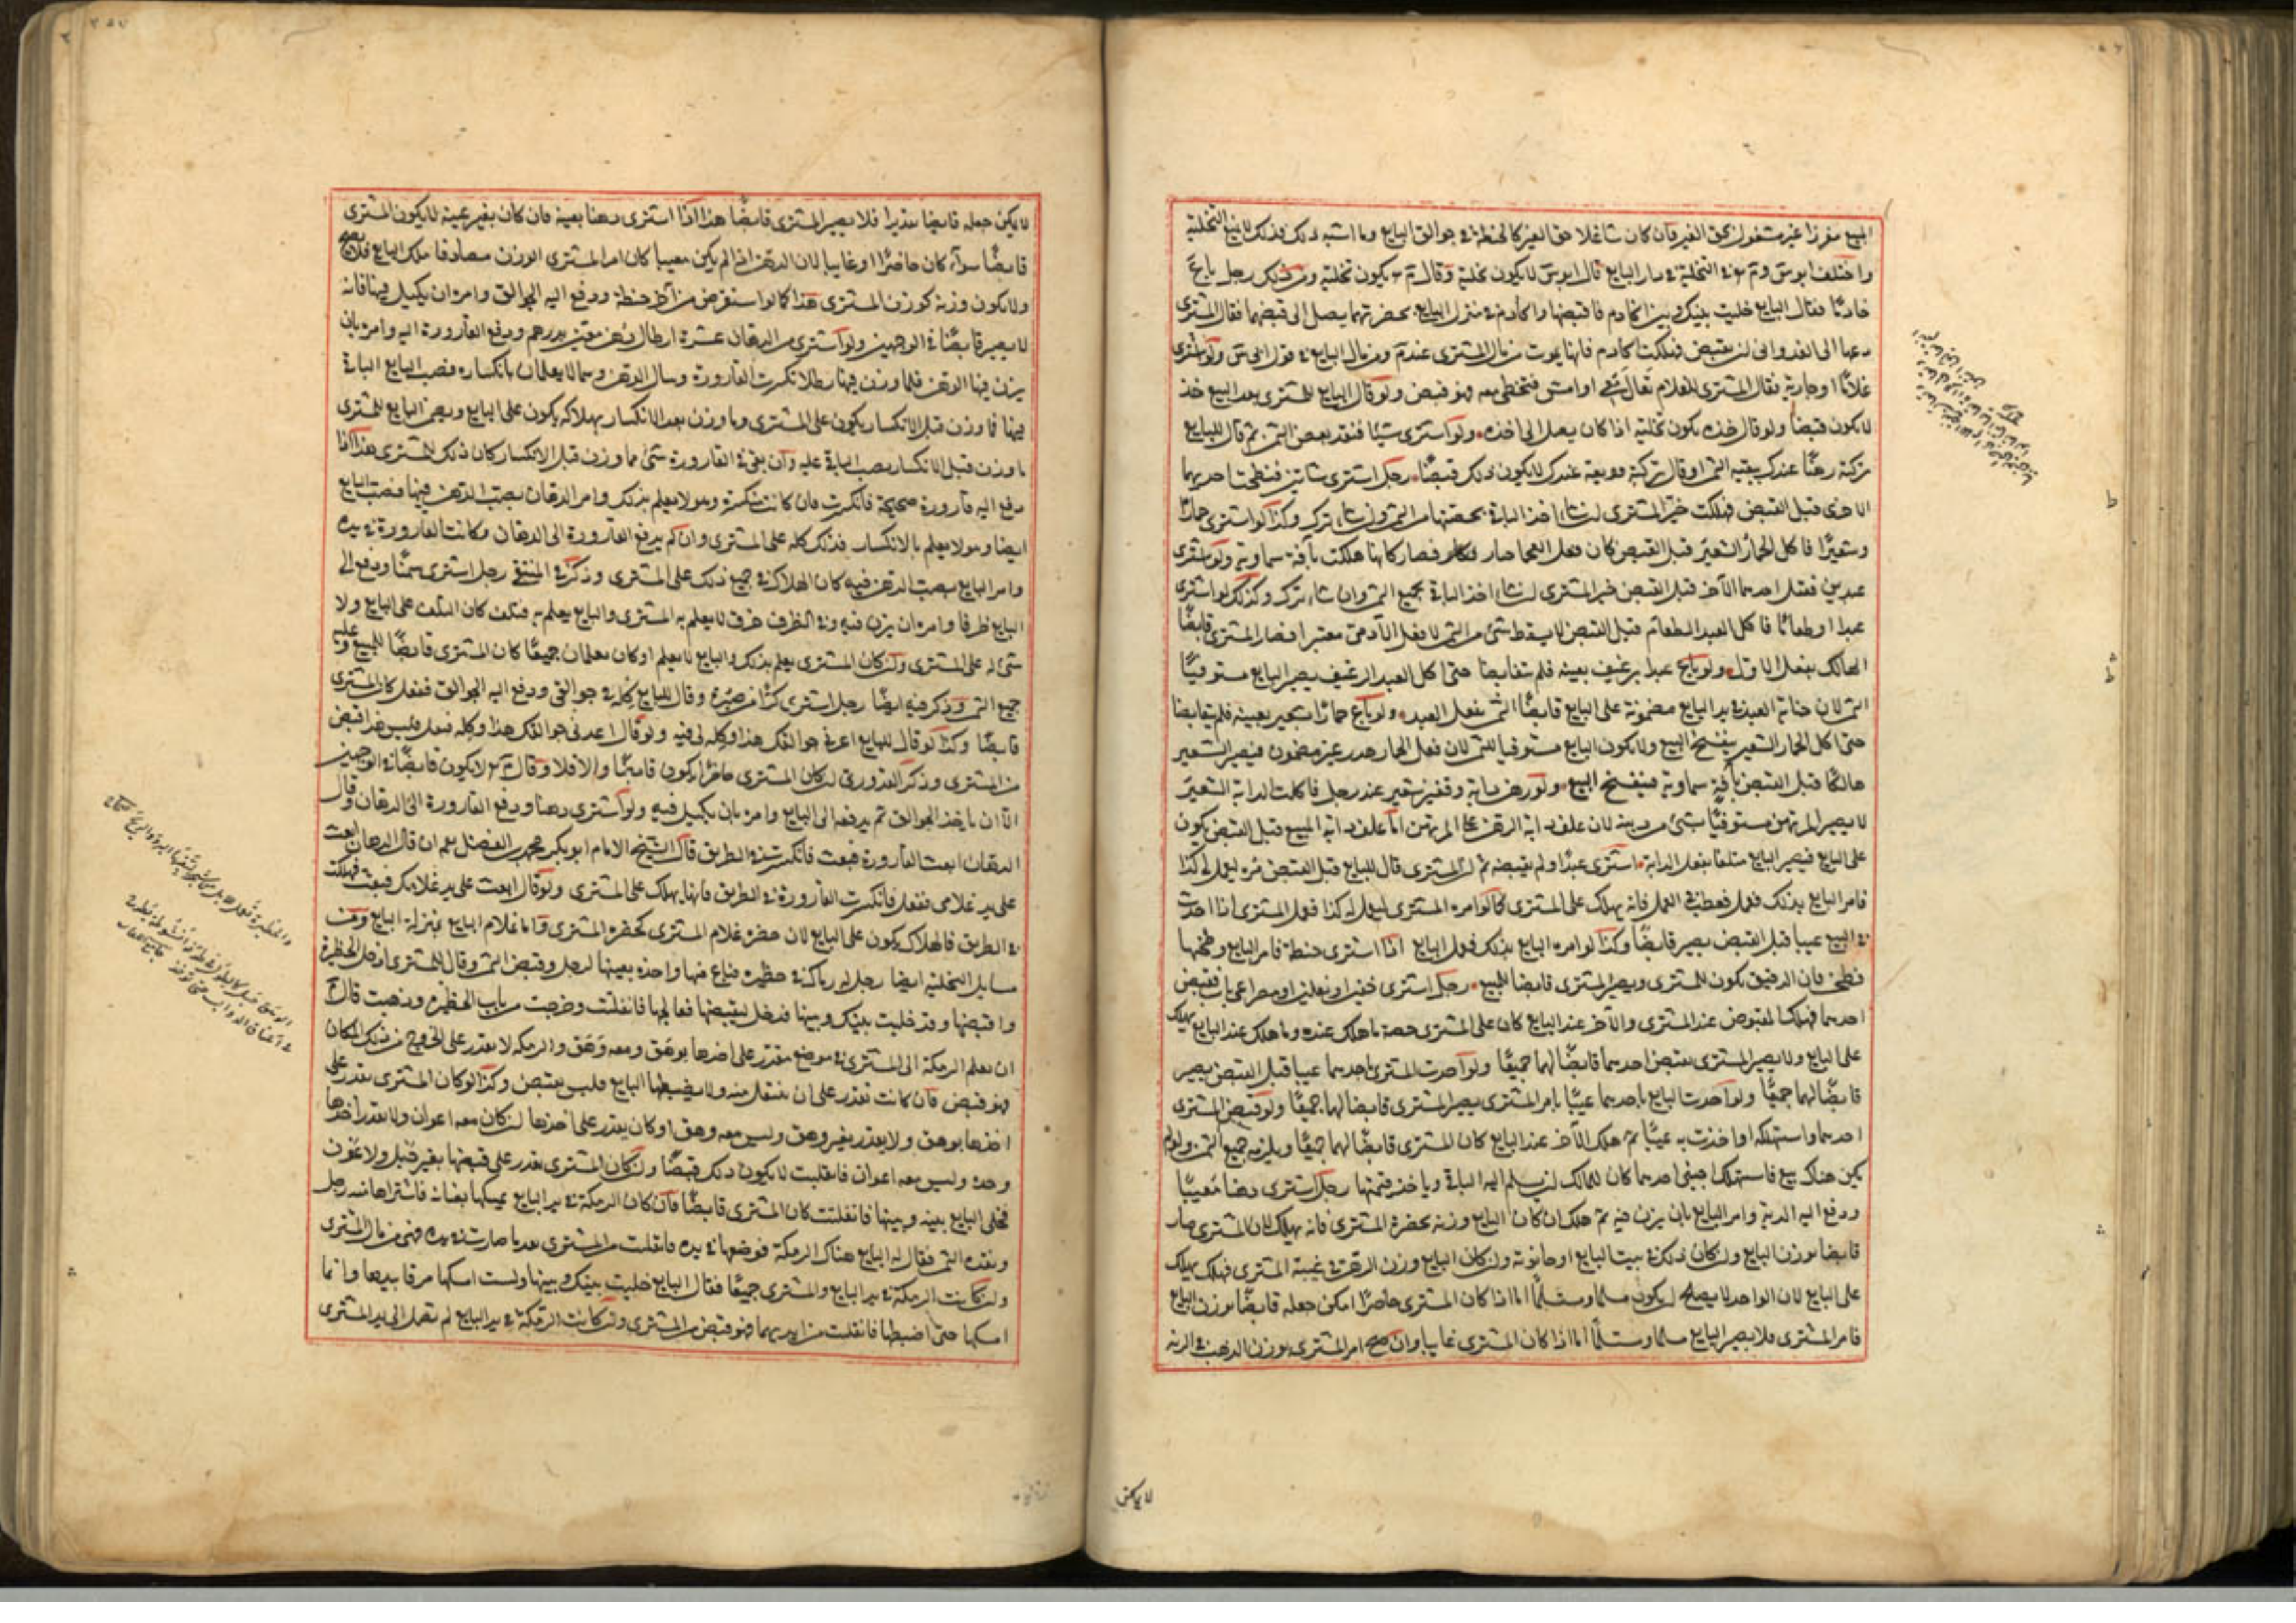 المبيع مفرزا غير مشغول بحق الغير فان كان شاغلا حق الغير كالحنطة في جوالق البايع وما اشبه ذلك فذلك لا يمنع التخلية
واختلف ابو س وم رح في التخلية في دار البايع قال ابو س لا يكون تخلية وقال م رح يكون تخلية ومن ذلك رجل باع
فقال البايع خليت بينك وبين الخادم فاقبضها والخادم في منزل البايع بحضرتهما يصل الى قبضها فقال المشترى
دعها الى الغد وابى ان يقبض فهلكت الخادم فانها يموت من مال المشترى عند م ومن مال البايع في قول ابى س ولو اشترى
غلاما او جارية فقال المشترى للغلام تعال معي او امش فتخطى معه فهو قبض ولو قال البايع للمشترى بعد البيع خذ
لا يكون قبضا ولو قال خذه يكون تخلية اذا كان يصل الى اخذه ولو اشترى شيئا فنقد بعض الثمن ثم قال للبايع
تركته رهنا عندك ببقية الثمن او قال تركته وديعة عندك لا يكون ذلك قبضا رجل اشترى شاتين فنطحت احديهما
الاخرى قبل القبض فهلكت خير المشترى ان شاء اخذ الباقية بحصتها من الثمن وان شاء ترك وكذا لو اشترى حمارا
وشعيرا فاكل الحمار الشعير قبل القبض كان فعل العجما جبار فصار كانها هلكت بآفة سماوية ولو اشترى
عبدين فقتل احدهما الآخر قبل القبض خير المشترى ان شاء اخذ الباقي بجميع الثمن وان شاء ترك وكذلك لو اشترى
عبدا وطعاما فاكل العبد الطعام قبل القبض لا يسقط شئ من الثمن لان فعل الآدمى معتبر فصار المشترى قابضا
الهالك بفعل الاول ولو باع عبدا برغيف بعينه فلم يتقابضا حتى اكل العبد الرغيف يصير البايع مستوفيا
الثمن لان جناية العبد في يد البايع مضمونة على البايع قابضا الثمن بفعل العبد ولو باع حمارا بشعير بعينه فلم يتقابضا
حتى اكل الحمار الشعير ينفسخ البيع ولا يكون البايع مستوفيا للثمن لان فعل الحمار هدر غير مضمون فيصير الشعير
هالكا قبل القبض بآفة سماوية فينفسخ البيع ولو رهن دابة وقفيز شعير عند رجل فاكلت الدابة الشعير
لا يصير المرتهن مستوفيا شئ من دينه لان علف دابة الرهن على المرتهن اما علف دابة المبيع قبل القبض يكون
على البايع فيصير البايع متلفا بفعل الدابة اشترى عبدا ولم يقبضه ثم ان المشترى قال للبايع قبل القبض مره ليعمل لى كذا
فامر البايع بذلك فعمل فعطب في العمل فانه يهلك على المشترى كما لو امره المشترى ليعمل له كذا فعمل المشترى اذا احدث
في المبيع عيبا قبل القبض يصير قابضا وكذا لو امره البايع بذلك ففعل البايع اذا اشترى حنطة فامر البايع وطحنها
فطحن فان الدقيق يكون للمشترى ويصير المشترى قابضا للمبيع رجل اشترى خفين او نعلين او مصراعى باب فقبض
احدهما فهلك المقبوض عند المشترى والآخر عند البايع كان على المشترى حصة ما هلك عنده وما هلك عند البايع يهلك
على البايع ولا يصير المشترى بقبض احدهما قابضا لهما جميعا ولو احدث المشترى باحدهما عيبا قبل القبض يصير
قابضا لهما جميعا ولو احدث البايع باحدهما عيبا بامر المشترى يصير المشترى قابضا لهما جميعا ولو قبض المشترى
احدهما واستهلكه او احدث به عيبا ثم هلك الآخر عند البايع كان المشترى قابضا لهما جميعا ويلزمه جميع الثمن ولو لم
يكن هناك بيع فاستهلك اجنبى احدهما كان للمالك ان يسلم اليه الباقي وياخذ قيمتها رجل اشترى دهنا معينا
ودفع اليه الدبة وامر البايع بان يزن فيه ثم هلك ان كان البايع وزنه بحضرة المشترى فانه يهلك لان المشترى صار
قابضا بوزن البايع وان كان ذلك في بيت البايع او حانوته وان كان البايع وزن الدهن في غيبة المشترى فهلك يهلك
على البايع لان الواحد لا يصلح ان يكون مسلما ومتسلما اما اذا كان المشترى حاضرا امكن جعله قابضا بوزن البايع
فامر المشترى فلا يصير البايع مسلما ومتسلما اما اذا كان المشترى غايبا وان صح امر المشترى بوزن الدهن في الدبة
لا يمكن
لا يمكن جعله قابضا تقديرا فلا يصير المشترى قابضا هذا اذا اشترى دهنا بعينه فان كان بغير عينه لا يكون المشترى
قابضا سواء كان حاضرا او غايبا لان الدهن اذا لم يكن معينا كان امر المشترى الوزن مصادفا ملك البايع فلا يصح
ولا يكون وزنه كوزن المشترى هذا كما لو استقرض من آخر حنطة ودفع اليه الجوالق وامره ان يكيل فيها فانه
لا يصير قابضا في الوجهين ولو اشترى من الدهقان عشرة ارطال دهن معين بدرهم ودفع القارورة اليه وامره بان
يزن فيها الدهن فلما وزن فيها رطلا انكسرت القارورة وسال الدهن وهما لا يعلمان بانكساره فصب البايع الباقي
فيها فما وزن قبل الانكسار يكون على المشترى وما وزن بعد الانكسار يهلاكه يكون على البايع ويضمن البايع للمشترى
ما وزن قبل الانكسار بصب الباقي عليه وان بقي في القارورة شئ مما وزن قبل الانكسار كان ذلك للمشترى هذا اذا
دفع اليه قارورة صحيحة فانكسرت فان كانت منكسرة وهو لا يعلم بذلك وامر الدهقان بصب الدهن فيها فصب البايع
ايضا وهو لا يعلم بالانكسار فذلك كله على المشترى وان لم يدفع القارورة الى الدهقان وكانت القارورة في يده
وامر البايع بصب الدهن فيه كان الهلاك في جميع ذلك على المشترى وذكر في المنتقى رجل اشترى سمنا ودفع الى
البايع ظرفا وامره ان يزن فيه وفي الظرف خرق لا يعلم به المشترى والبايع يعلم به فتلف كان التلف على البايع ولا
شئ له على المشترى وان كان المشترى يعلم بذلك والبايع لا يعلم او كان يعلمان جميعا كان المشترى قابضا للمبيع وعليه
جميع الثمن وذكر فيه ايضا رجل اشترى كرا من صبرة وقال للبايع كله في جوالقى ودفع اليه الجوالق ففعل كان المشترى
قابضا وكذا لو قال للبايع اعرنى جوالقك هذا وكله لى فيه ولو قال اعرنى جوالقك هذا وكله ففعل فليس هذا قبض
من المشترى وذكر القدورى ان كان المشترى حاضرا يكون قابضا والا فلا وقال م رح لا يكون قابضا في الوجهين
الا ان ياخذ الجوالق ثم يدفعه الى البايع وامره بان يكيل فيه ولو اشترى دهنا ودفع القارورة الى الدهقان وقال
الدهقان ابعث القارورة فبعث فانكسرت في الطريق قال الشيخ الامام ابو بكر محمد بن الفضل رحمه ان قال الدهان ابعث
على يد غلامى ففعل فانكسرت القارورة في الطريق فانها يهلك على المشترى ولو قال ابعث على يد غلامك فبعث فهلكت
في الطريق فالهلاك يكون على البايع لان حضرة غلام المشترى كحضرة المشترى واما غلام البايع بمنزلة البايع ومن
مسايل التخلية ايضا رجل له رماك في حظيرة فباع منها واحدة بعينها لرجل وقبض الثمن وقال للمشترى ادخل الحظيرة
واقبضها وقد خليت بينك وبينها فدخل ليقبضها فعالجها فانفلتت وخرجت من باب الحظيرة وذهبت قال م
ان يسلم الرمكة الى المشترى في موضع يقدر على اخذها بوهق ومعه وهق والرمكة لا يقدر على الخروج من ذلك المكان
فهو قبض فان كانت تقدر على ان ينفلت منه ولا يضبطها البايع فليس بقبض وكذا لو كان المشترى يقدر على
اخذها بوهق ولا يقدر بغير وهق وليس معه وهق او كان يقدر على اخذها ان كان معه اعوان ولا يقدر اخذها
وحده وليس معه اعوان فانفلتت لا يكون ذلك قبضا وان كان المشترى يقدر على قبضها بغير حبل ولا عون
فخلى البايع بينه وبينها فانفلتت كان المشترى قابضا فان كان الرمكة في يد البايع يمسكها بعنانه فاشتراها منه رجل
ونقده الثمن فقال له البايع هناك الرمكة فوضعها في يده فانفلتت من المشترى بعد ما صارت في يده فهى من مال المشترى
وان كانت الرمكة في يد البايع والمشترى جميعا فقال البايع خليت بينك وبينها ولست امسكها من يدها وانما
امسكها حتى اضبطها فانفلتت من ايديهما فهو قبض من المشترى وان كانت الرمكة في يد البايع لم تصل الى يد المشترى